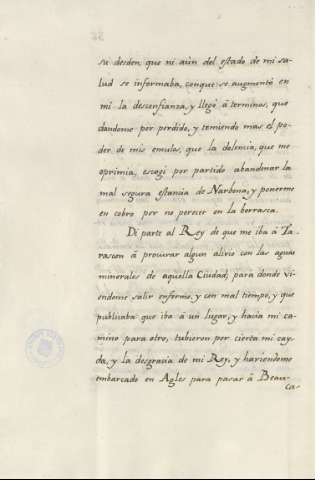 su desden que ni aùn del estado de mi sa-
lud se informaba, conque se augmentò en
mi la desconfianza, y llegò à terminos, que
dandome por perdido, y temiendo mas el po-
der de mis emulos, que la dolencia, que me
oprimia, escogi por partido abandonar la
mal segura estancia de Narbona, y ponerme
en cobro por no perecer en la borrasca.
Di parte al Rey de que me iba à Ta-
rascon à procurar algun alivio con las aguas
minerales de aquella Ciudad; para donde vi-
endome salir enfermo, y con mal tiempo, y que
publicaba que iba à un lugar, y hacia mi ca-
mino para otro, tubieron por cierta mi cay-
da, y la desgracia de mi Rey, y haviendome
embarcado en Agles para pasar à Beau-
ca-